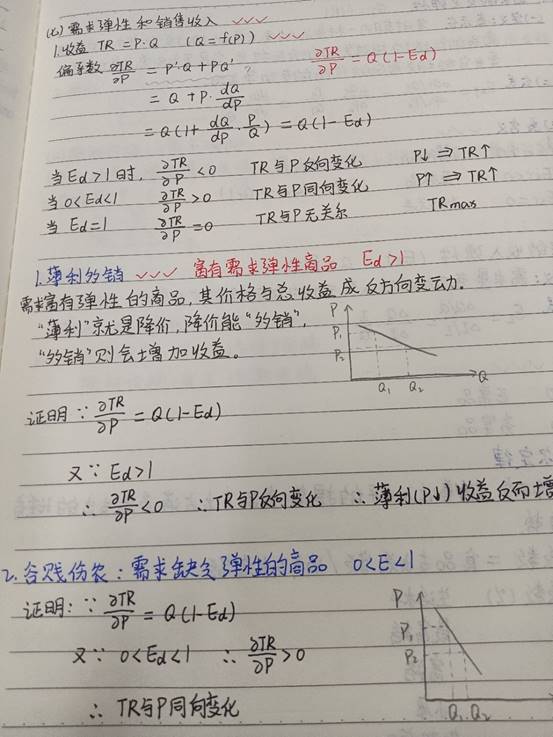 (七) 需求弹性和销售收入 ✓✓✓
1.收益 TR = P·Q (Q = f(P)) ✓✓✓
偏导数 ∂TR/∂P = P'·Q + PQ' ? ∂TR/∂P = Q(1-Ed)
= Q + P·dQ/dP
= Q(1 + dQ/dP · P/Q) = Q(1-Ed)
当 Ed>1时, ∂TR/∂P <0 TR与P反向变化 P↓ ⇒ TR↑
当 0<Ed<1 ∂TR/∂P >0 TR与P同向变化 P↑ ⇒ TR↑
当 Ed=1 ∂TR/∂P =0 TR与P无关系 TRmax
1.薄利多销 ✓✓✓ 富有需求弹性商品 Ed>1
需求富有弹性的商品,其价格与总收益成反方向变动.
"薄利"就是降价,降价能"多销",
"多销"则会增加收益。
P
P₁
P₂
Q₁ Q₂ Q
证明 ∵ ∂TR/∂P = Q(1-Ed)
又∵ Ed>1
∴ ∂TR/∂P <0 ∴ TR与P反向变化 ∴ 薄利(P↓)收益反而增
2.谷贱伤农: 需求缺乏弹性的商品 0<E<1
证明: ∵ ∂TR/∂P = Q(1-Ed)
又∵ 0<Ed<1 ∴ ∂TR/∂P >0
∴ TR与P同向变化
P
P₁
P₂
Q₁ Q₂